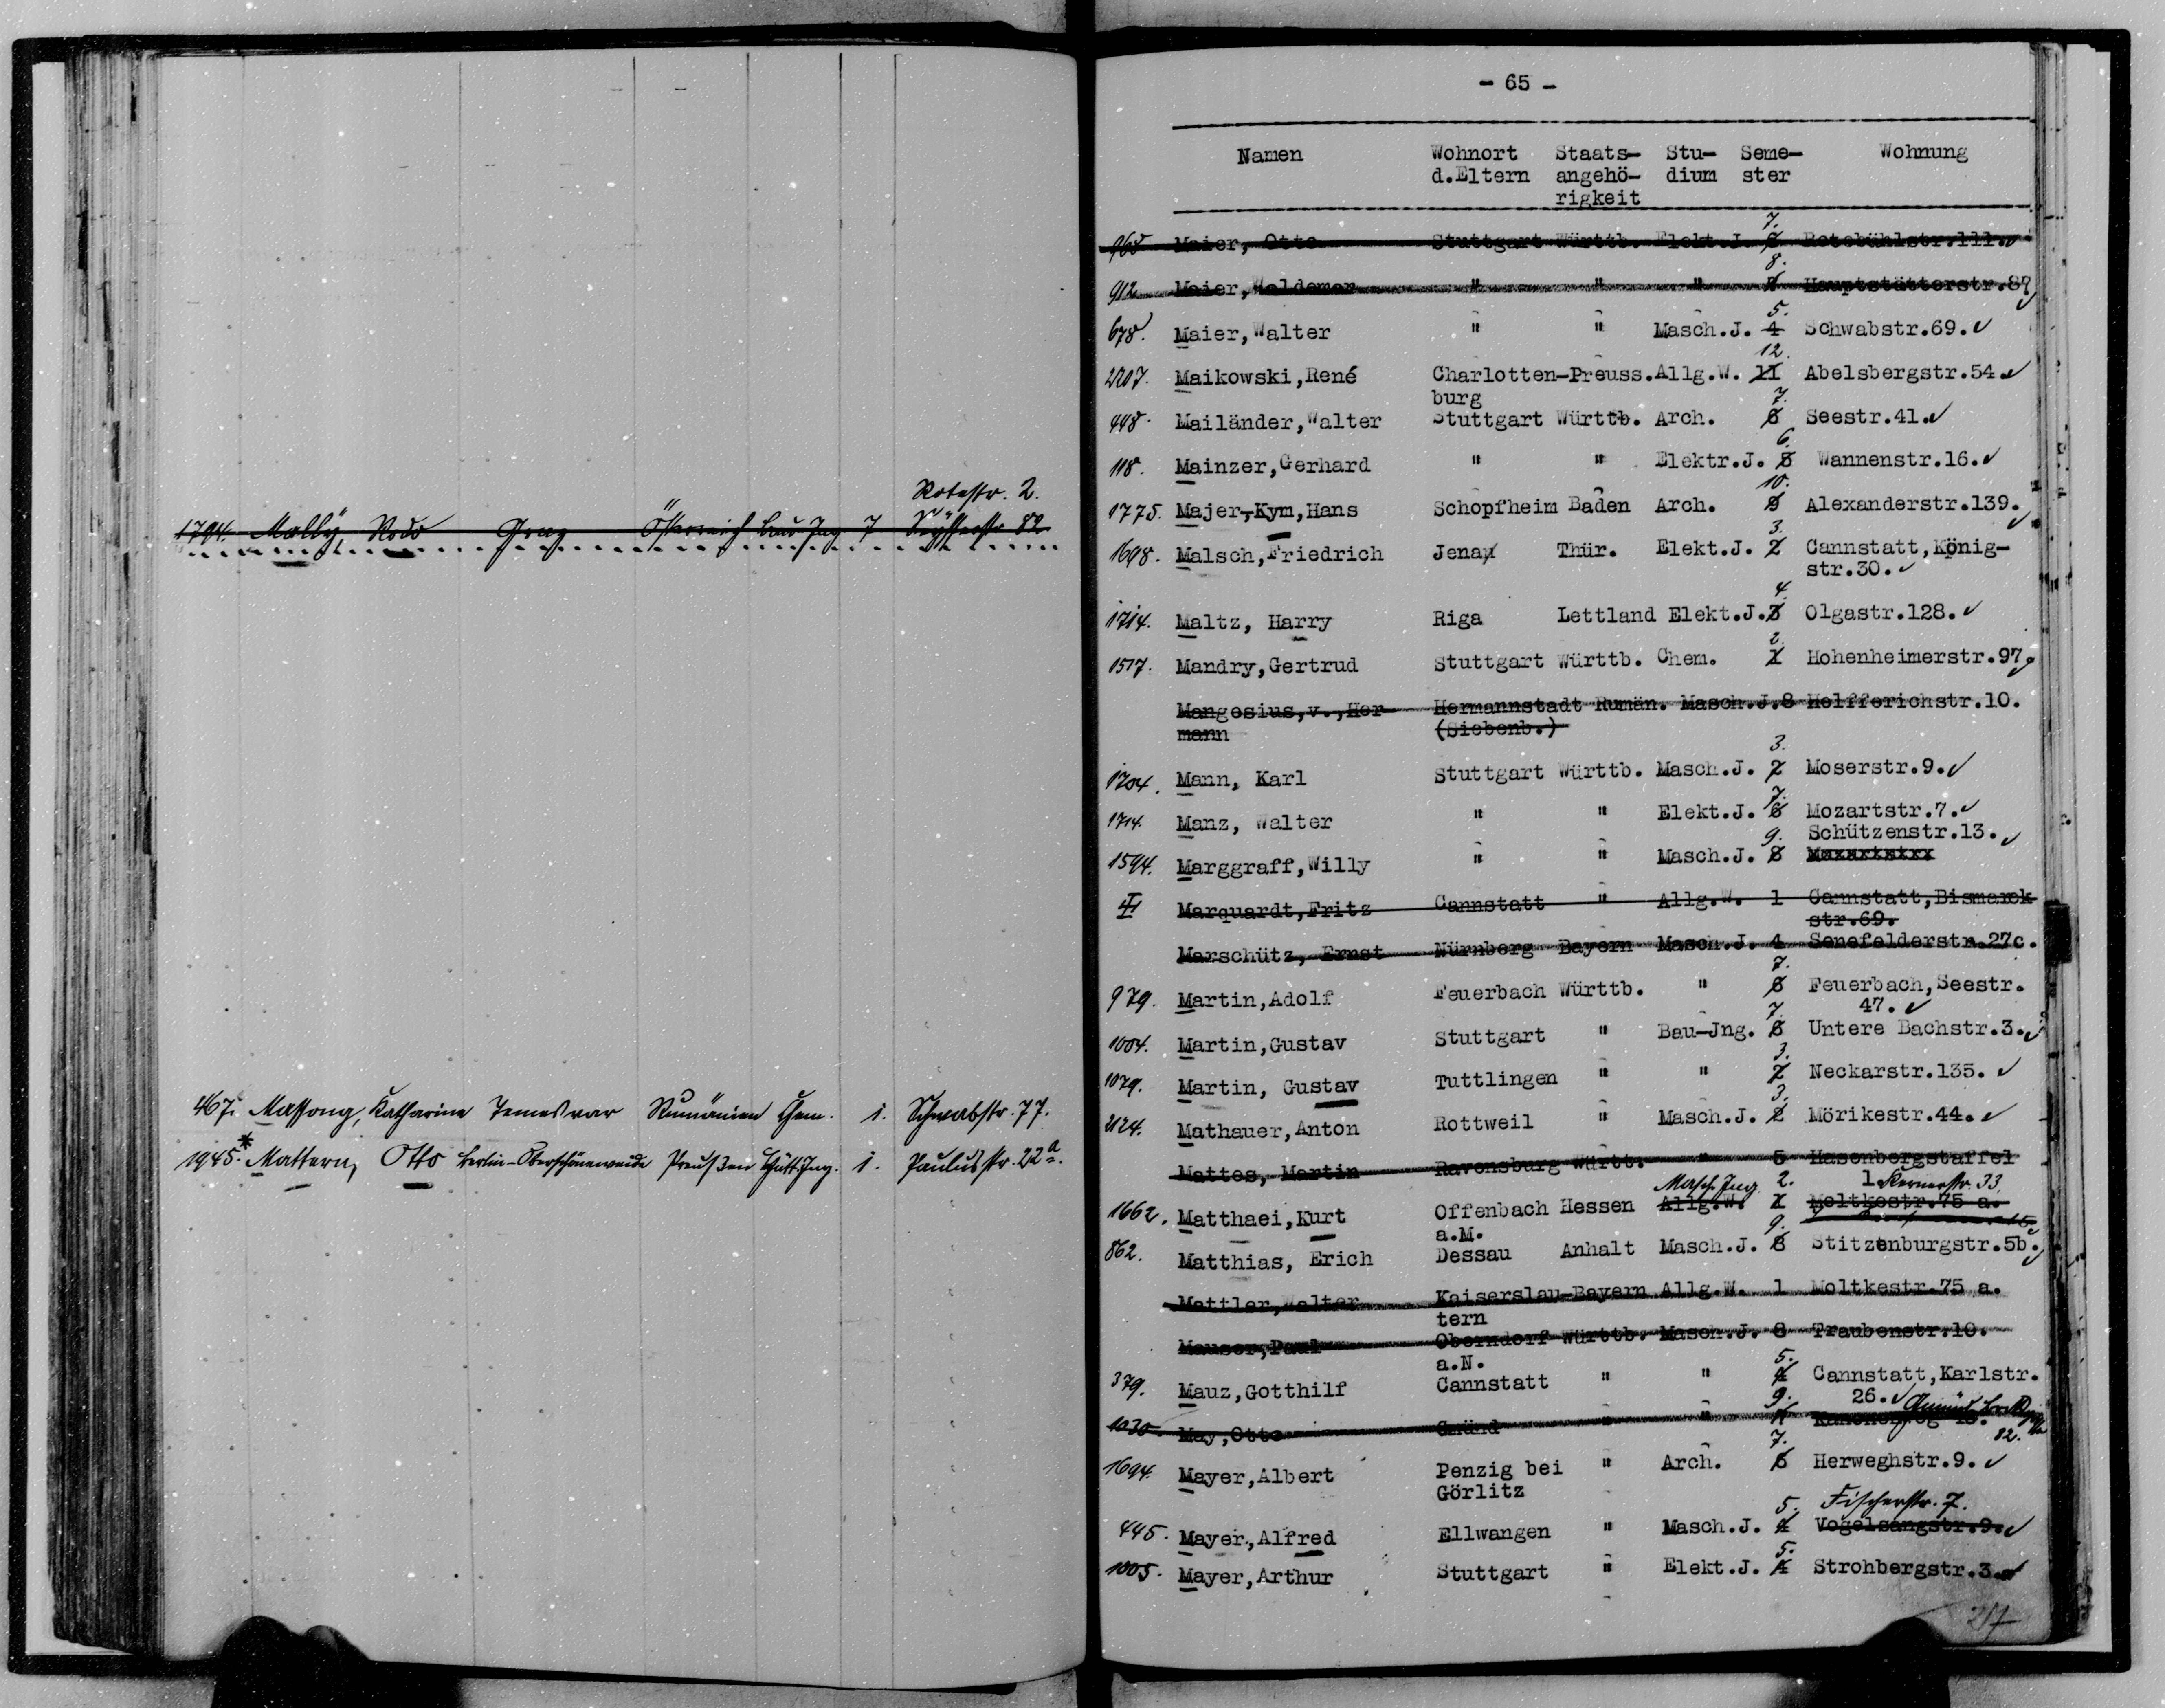 Rotestr. 2.
1794. Mally, Rodo Graz Österreich Bau Ing 7
467. Massong, Katharine Temesvar Rumänien Chem. 1. Schwabstr. 77.
1945.* Mattern, Otto Berlin-Oberschöneweide Preußen Hütt. Ing. 1. Paulusstr. 22a.
- 65 -
Namen Wohnort Staats- Stu- Seme- Wohnung
d.Eltern angehö- dium ster
rigkeit
7.
965 Maier, Otto Stuttgart Württb. Elekt.J. Rotebühlstr.111.
8.
912 Maier, Waldemar " " " Hauptstätterstr.87
5.
678. Maier, Walter " " Masch.J. 4 Schwabstr.69.
12.
2207. Maikowski, René Charlotten-Preuss. Allg.W. 11 Abelsbergstr.54.
burg
7.
448. Mailänder, Walter Stuttgart Württb. Arch. 6 Seestr.41.
6.
118. Mainzer, Gerhard " " Elektr.J. Wannenstr.16.
10.
1775. Majer-Kym, Hans Schopfheim Baden Arch. 9 Alexanderstr.139.
3.
1698. Malsch, Friedrich Jena Thür. Elekt.J. 2 Cannstatt, König-
str.30.
4.
1714. Maltz, Harry Riga Lettland Elekt.J. 3 Olgastr.128.
2.
1517. Mandry, Gertrud Stuttgart Württb. Chem. 1 Hohenheimerstr.97.
Mangesius, v., Her- Hermannstadt Rumän. Masch.J. 8 Helfferichstr.10.
mann (Siebenb.)
3.
1704. Mann, Karl Stuttgart Württb. Masch.J. 2 Moserstr.9.
7.
1714. Manz, Walter " " Elekt.J. 6 Mozartstr.7.
9. Schützenstr.13.
1594. Marggraff, Willy " " Masch.J. 8
Marquardt, Fritz Cannstatt " Allg.W. 1 Cannstatt, Bismarck-
str.69.
Marschütz, Ernst Nürnberg Bayern Masch.J. 4 Senefelderstr.27c.
7.
979. Martin, Adolf Feuerbach Württb. " 6 Feuerbach, Seestr.
47.
7.
1004. Martin, Gustav Stuttgart " Bau-Jng. 6 Untere Bachstr.3.
3.
1079. Martin, Gustav Tuttlingen " " 2 Neckarstr.135.
3.
2124. Mathauer, Anton Rottweil " Masch.J. 2 Mörikestr.44.
Mattes, Martin Ravensburg Württ. " 5 Hasenbergstaffel
Masch. Ing 2. 1 Kernerstr. 33
1662. Matthaei, Kurt Offenbach Hessen Allg.W. 1 Moltkestr.75 a.
a.M. 9.
862. Matthias, Erich Dessau Anhalt Masch.J. 8 Stitzenburgstr.5b.
Mattler, Walter Kaiserslau-Bayern Allg.W. 1 Moltkestr.75 a.
tern
Mauser, Paul Oberndorf Württb. Masch.J. 8 Traubenstr.10.
a.N. 5.
379. Mauz, Gotthilf Cannstatt " " 4 Cannstatt, Karlstr.
9. 26. Gmünd
1030. May, Otto Gmünd " "
7. 82.
1694. Mayer, Albert Penzig bei " Arch. 6 Herweghstr.9.
Görlitz
5. Fischerstr. 7.
445. Mayer, Alfred Ellwangen " Masch.J. 4 Vogelsangstr.9.
5.
1005. Mayer, Arthur Stuttgart " Elekt.J. 4 Strohbergstr.3.
217